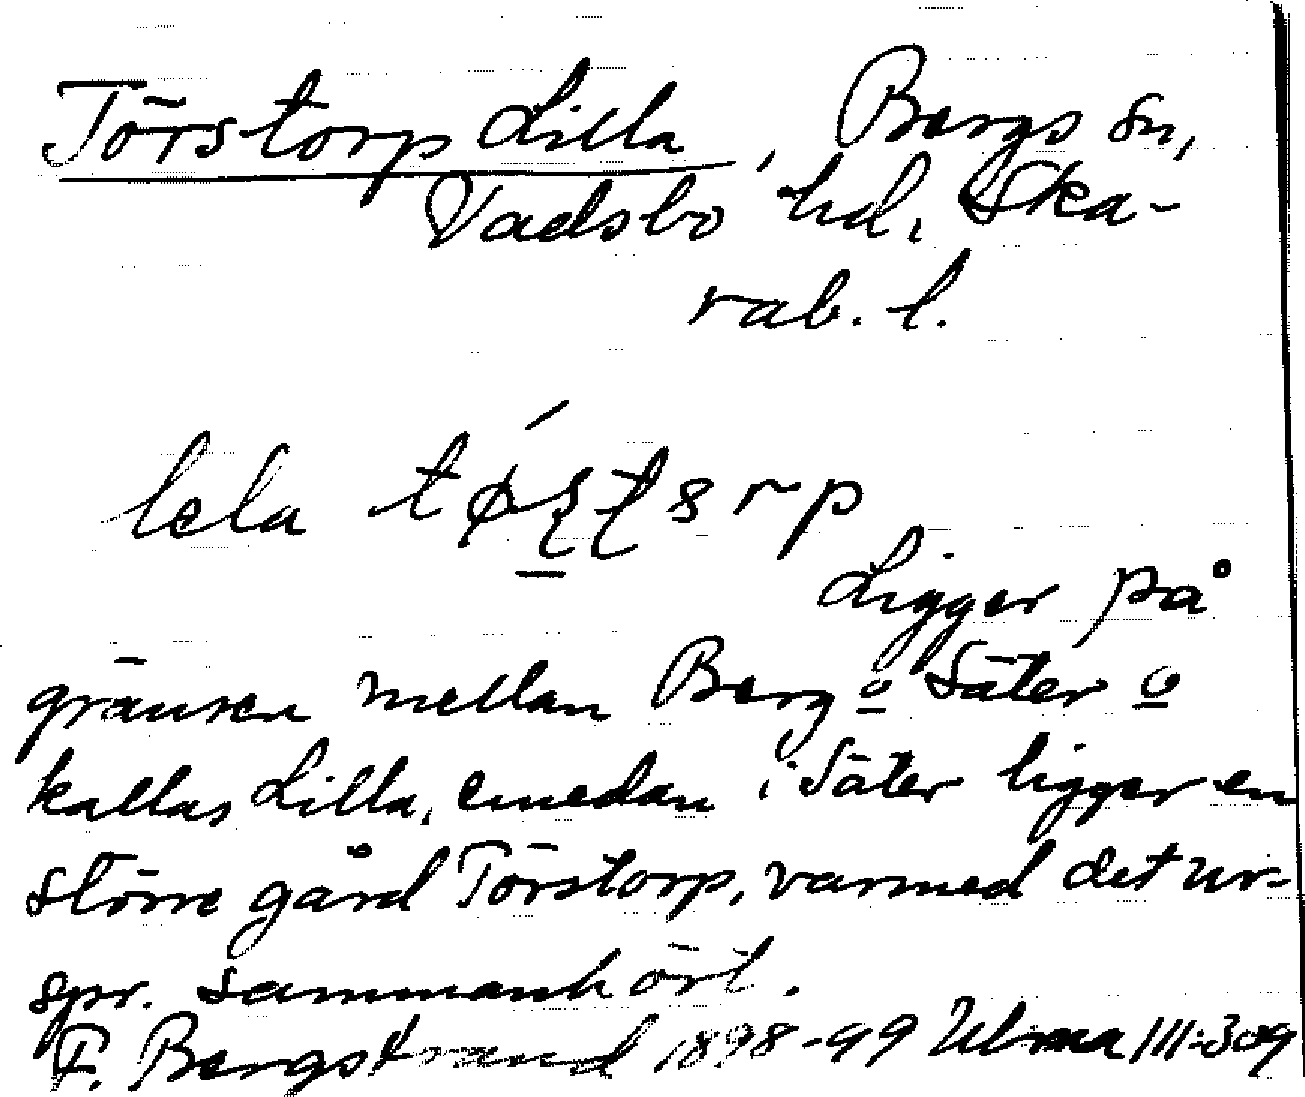 Törstorp Lilla, Bergs sn,
Vadsbo hd, Ska-
rab. l.
lela
Ligger på
gränsen mellan Berg o Säter o
kallas Lilla, emedan i Säter ligger en
större gård Törstorp, varmed det ur-
spr. sammanhört.
F. Bergstrand 1898-99 Ulma 111:309